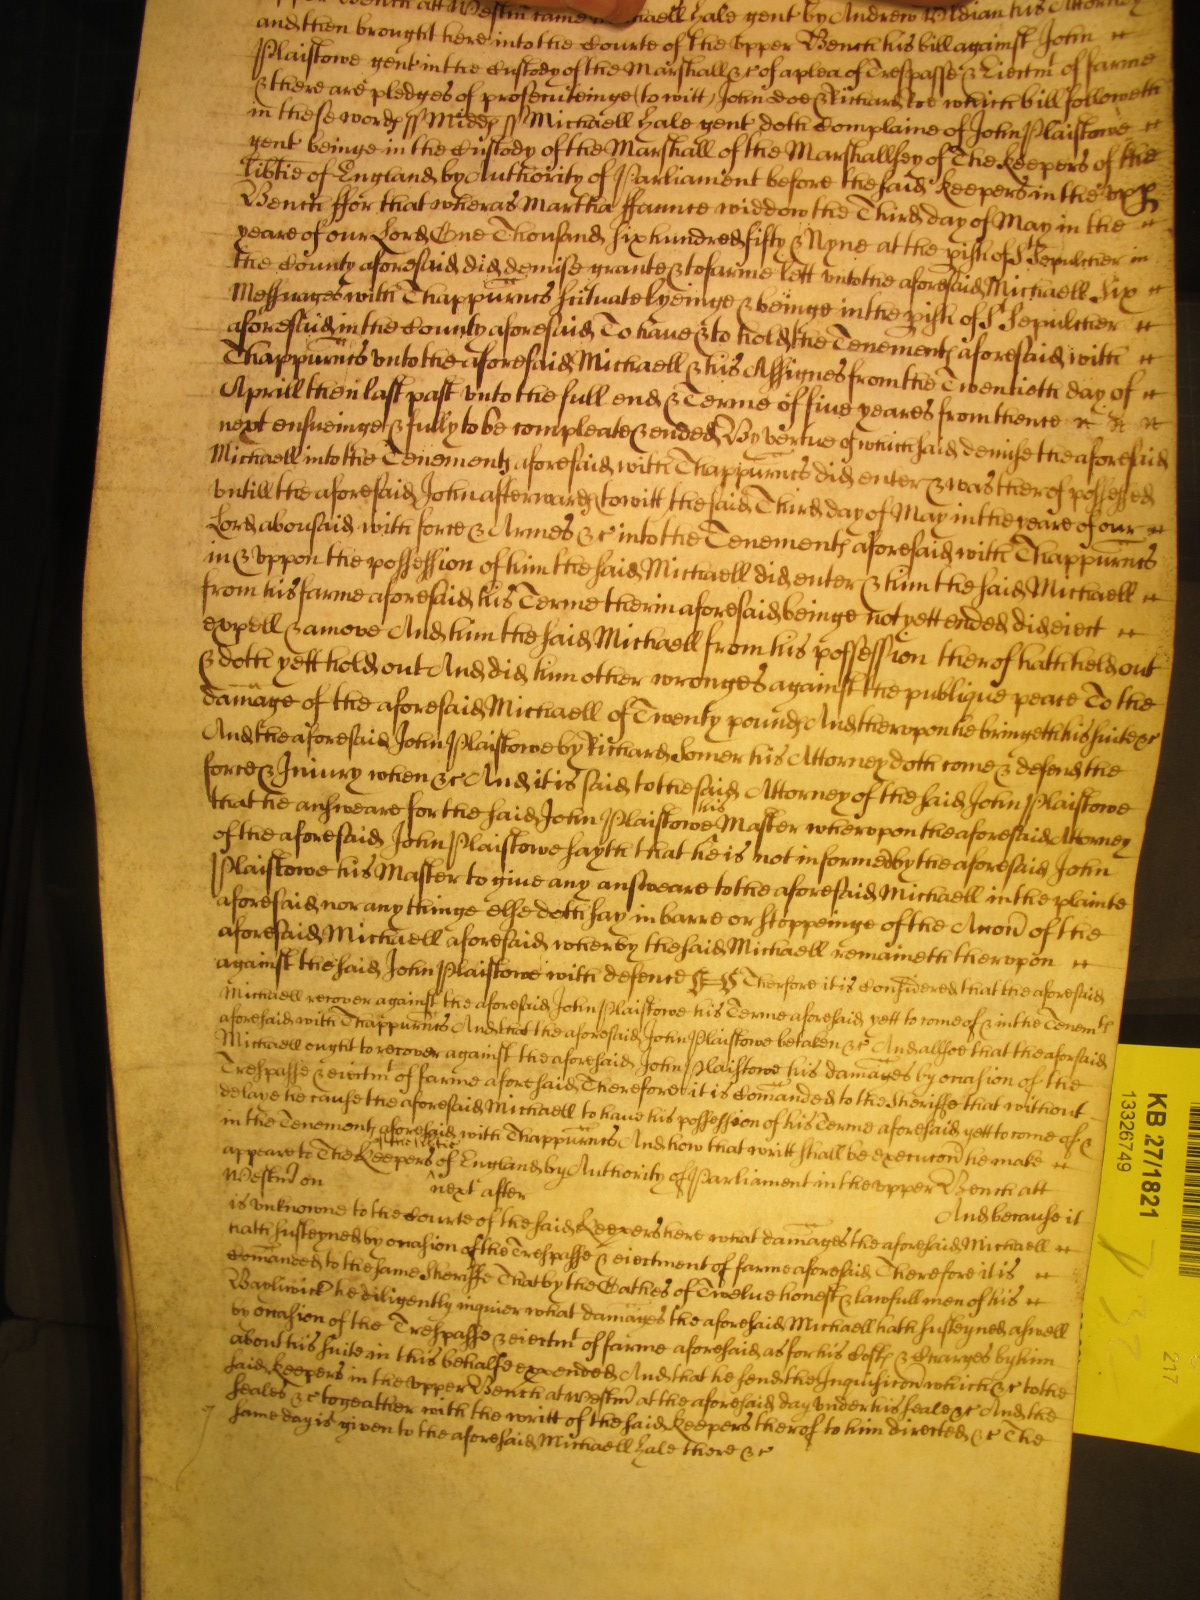 Bench att Westm̄ came Michaell Hale gent by Andrew his Attorney
and then brought here into the Courte of the vpper Bench his bill against John
Plaistowe gent in the Custody of the Marshall &c of a plea of Trespasse & Eiectmt of farme
& there are pledges of prosecuteinge (to witt) John doe & Richard roe which bill followeth
in these words ss Midds ss Michaell Hale gent doth Complaine of John Plaistowe
gent beinge in the Custody of the Marshall of the Marshallsey of The keepers of the
libtie of England by Authority of Parliament before the said keepers in the vpp
Bench ffor that wheras Martha ffaunce widdow the Third day of May in the
yeare of our Lord One Thousand six hundred fifty & Nyne at the pish of St Sepulcher in
the County aforesaid did demise grante & to farme lett vnto the aforesaid Michaell Six
Messuages with Thappurn̄cs scituate lyeinge & beinge in the pish of St Sepulcher
aforesaid in the County aforesaid To have & to hold the Tenements aforesaid with
Thappurn̄cs vnto the aforesaid Michaell & his Assignes from the Twentieth day of
Aprill then last past vnto the full end & Terme of fiue yeares from thence
next ensueinge & fully to be compleate & ended By vertue of which said demise the aforesaid
Michaell into the Tenements aforesaid with Thappurn̄cs did enter & was therof possessed
vntill the aforesaid John afterwards to witt the said Third day of May in the yeare of our
Lord abousaid with force & Armes &c into the Tenements aforesaid with Thappurn̄cs
in & vppon the possession of him the said Michaell did enter & him the said Michaell
from his farme aforesaid his Terme therin aforesaid beinge not yett ended did eiect
expell & amove And him the said Michaell from his possession therof hath held out
& doth yett hold out And did him other wronges against the publique peace To the
damage of the aforesaid Michaell of Twenty pounds And thervpon he bringeth his suite &c
And the aforesaid John Plaistowe by Richard Somer his Attorney doth come & defend the
force & Iniury when &c And it is said to the said Attorney of the said John Plaistowe
that he answeare for the said John Plaistowe his Master whervpon the aforesaid Attorney
of the aforesaid John Plaistowe sayth that he is not informed by the aforesaid John
Plaistowe his Master to giue any answeare to the aforesaid Michaell in the plainte
aforesaid nor any thinge else doth say in barre or stoppeinge of the Accōn of the
aforesaid Michaell aforesaid wherby the said Michaell remaineth thervpon
against the said John Plaistowe with defence Therfore it is Considered that the aforesaid
Michaell recover against the aforesaid John Plaistowe his Terme aforesaid yett to come of & in the Tenemts
aforesaid with Thappurn̄cs And that the aforesaid John Plaistowe be taken &c And allsoe that the aforsaid
Michaell ought to recover against the aforesaid John Plaistowe his damages by occasion of the
Trespasse & eiectmt of farme aforesaid Therefore it is Comānded to the Sheriffe that without
delaye he cause the aforesaid Michaell to haue his possession of his Terme aforesaid yett to come of &
in the Tenements aforesaid with Thappurn̄cs And how that writt shall be executed he make
appeare to The Keepers of the libtie of England by Authority of Parliament in the vpper Bench att
Westm̄ on next after And because it
is vnknowne to the Courte of the said Keepers here what damages the aforesaid Michaell
hath susteyned by occasion of the Trespasse & eiectment of farme aforesaid Therefore it is
Comānded to the same Sheriffe That by the Oathes of Twelue honest & lawfull men of his
Bayliwick he diligently inquier what damages the aforesaid Michaell hath susteyned aswell
by occasion of the Trespasse & eiectmt of farme aforesaid as for his Costs & Charges by him
about his suite in this behalfe expended And that he send the Inquisicōn which &c to the
said keepers in the vpper Bench at Westm̄ at the aforesaid day vnder his seale &c And the
seales &c togeather with the writt of the said keepers therof to him directed &c The
same day is given to the aforesaid Michaell Hale there &c
KB 27/1821
13326749
217